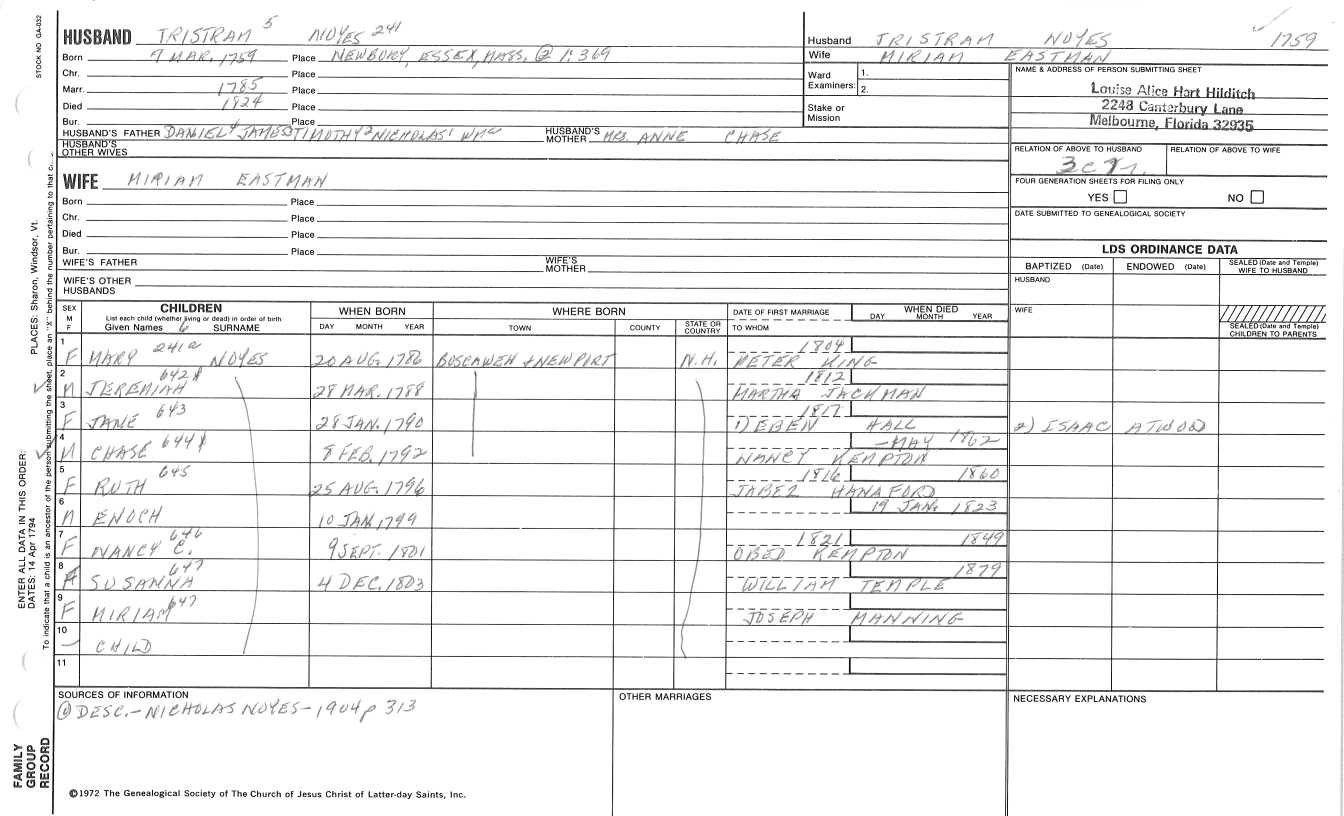 STOCK NO GA-032
HUSBAND TRISTRAM 5 NOYES 241
Born 7 MAR. 1759 Place NEWBURY, ESSEX, MASS. @ 1:369
Chr. Place
Marr. 1785 Place
Died 1824 Place
Bur. Place
HUSBAND'S FATHER DANIEL 4 JAMES 3 TIMOTHY 2 NICHOLAS 1 WM HUSBAND'S MOTHER MRS. ANNE CHASE
HUSBAND'S OTHER WIVES
WIFE MIRIAM EASTMAN
Born Place
Chr. Place
Died Place
Bur. Place
WIFE'S FATHER WIFE'S MOTHER
WIFE'S OTHER HUSBANDS
Husband TRISTRAM NOYES 1759
Wife MIRIAM EASTMAN
Ward Examiners: 1. 2.
Stake or Mission
NAME & ADDRESS OF PERSON SUBMITTING SHEET
Louise Alice Hart Hilditch
2248 Canterbury Lane
Melbourne, Florida 32935
RELATION OF ABOVE TO HUSBAND RELATION OF ABOVE TO WIFE
FOUR GENERATION SHEETS FOR FILING ONLY
YES NO
DATE SUBMITTED TO GENEALOGICAL SOCIETY
LDS ORDINANCE DATA
BAPTIZED (Date) ENDOWED (Date) SEALED (Date and Temple) WIFE TO HUSBAND
HUSBAND
WIFE
SEALED (Date and Temple) CHILDREN TO PARENTS
SEX M F CHILDREN List each child (whether living or dead) in order of birth Given Names SURNAME WHEN BORN DAY MONTH YEAR WHERE BORN TOWN COUNTY STATE OR COUNTRY DATE OF FIRST MARRIAGE TO WHOM WHEN DIED DAY MONTH YEAR
1 F MARY 241a NOYES 20 AUG. 1786 BOSCAWEN + NEWPORT N.H. 1804 PETER KING
2 M JEREMIAH 642 28 MAR. 1788 1812 MARTHA JACKMAN
3 F JANE 643 28 JAN. 1790 1817 1) EBEN HALL 2) ISAAC ATWOOD
4 M CHASE 644 8 FEB. 1792 NANCY KEMPTON – MAY 1862
5 F RUTH 645 25 AUG. 1796 1816 JABEZ HANAFORD 1860
6 M ENOCH 10 JAN. 1799 19 JAN. 1823
7 F NANCY C. 646 9 SEPT. 1801 1821 OBED KEMPTON 1849
8 F SUSANNA 647 4 DEC. 1803 WILLIAM TEMPLE 1879
9 F MIRIAM 647 JOSEPH MANNING
10 – CHILD
11
SOURCES OF INFORMATION
@ DESC. – NICHOLAS NOYES – 1904 p 313
OTHER MARRIAGES
NECESSARY EXPLANATIONS
©1972 The Genealogical Society of The Church of Jesus Christ of Latter-day Saints, Inc.
FAMILY GROUP RECORD
ENTER ALL DATA IN THIS ORDER:
DATES: 14 Apr 1794
PLACES: Sharon, Windsor, Vt.
To indicate that a child is an ancestor of the person submitting the sheet, place an "X" behind the number pertaining to that